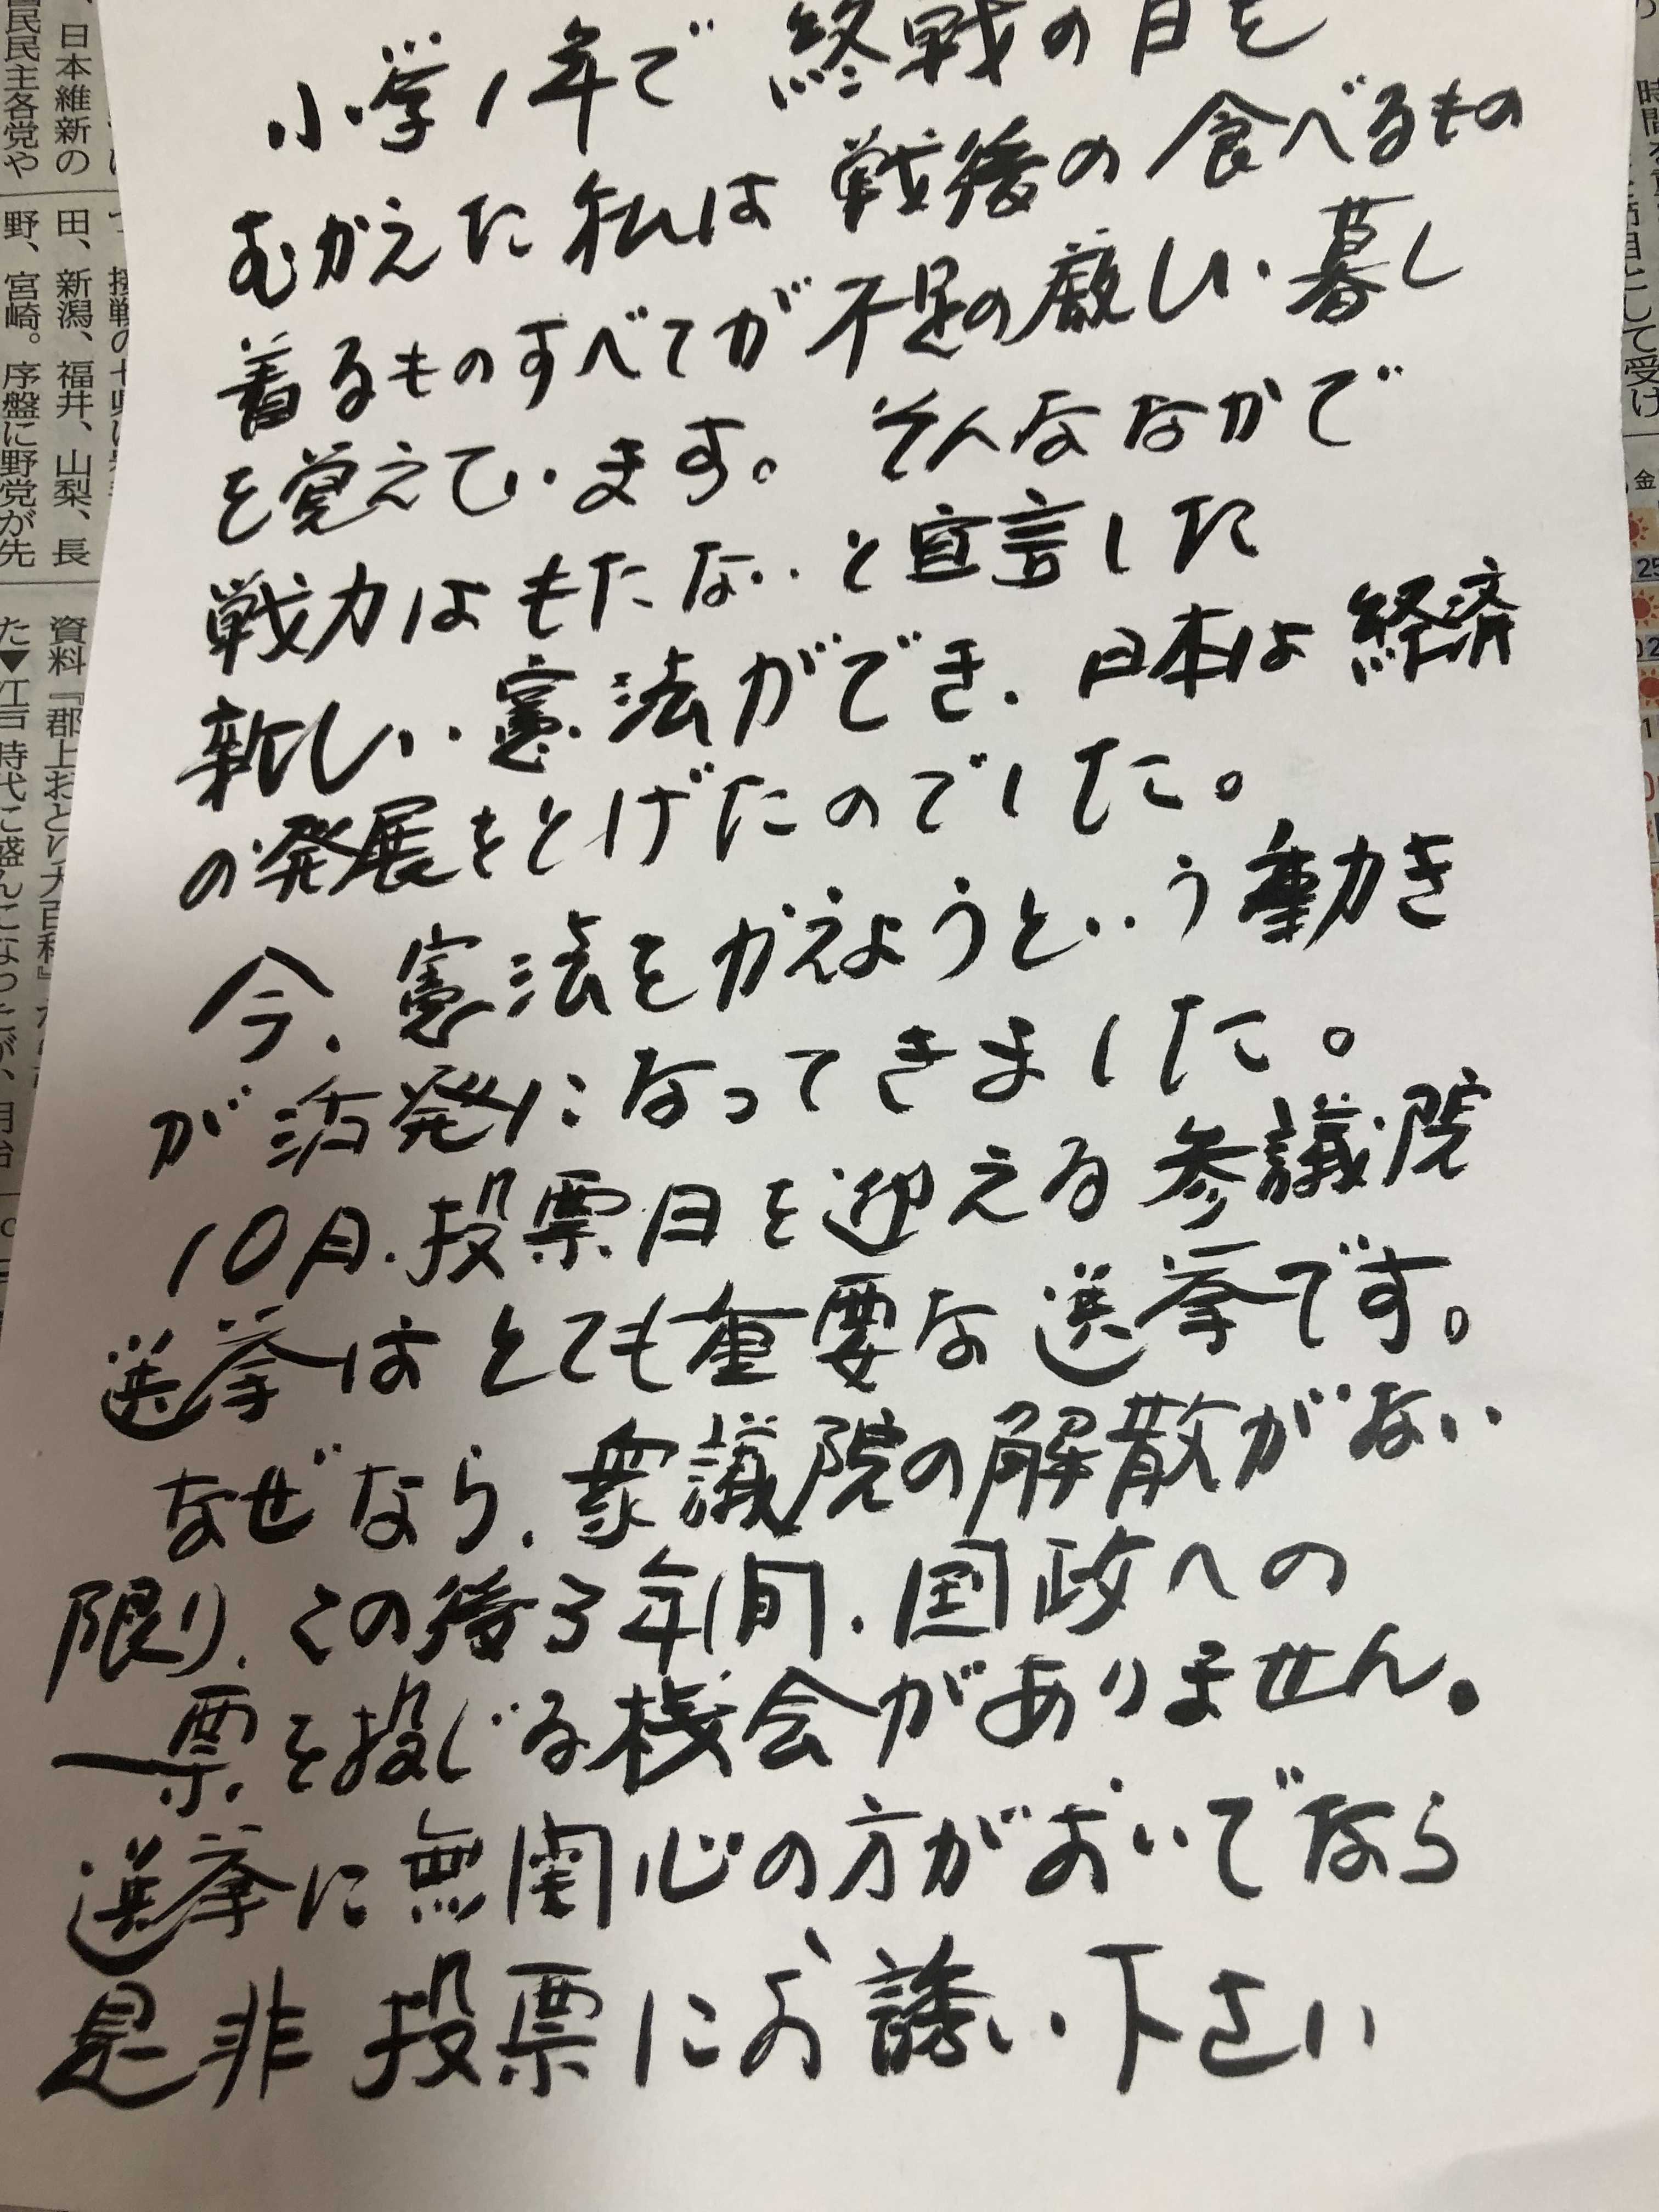 小学1年で 終戦の日を
むかえた 私は 戦後の 食べるもの
着るものすべてが不足の厳しい暮し
を覚えています。 そんななかで
戦力はもたないと宣言した
新しい憲法ができ、日本は経済
の発展をとげたのでした。
今、憲法をかえようという動き
が活発になってきました。
10月、投票日を迎える参議院
選挙はとても重要な選挙です。
なぜなら、衆議院の解散がない
限り、この後3年間、国政への
一票を投じる機会がありません。
選挙に無関心の方がおいでなら
是非 投票にお誘い下さい
日本維新の
国民民主各党や
田、新潟、福井、山梨、長
野、宮崎。序盤に野党が先
資料『郡上おどり大百科』
た▼江戸時代に盛んになったが、明治
時間
目として受け
金
25